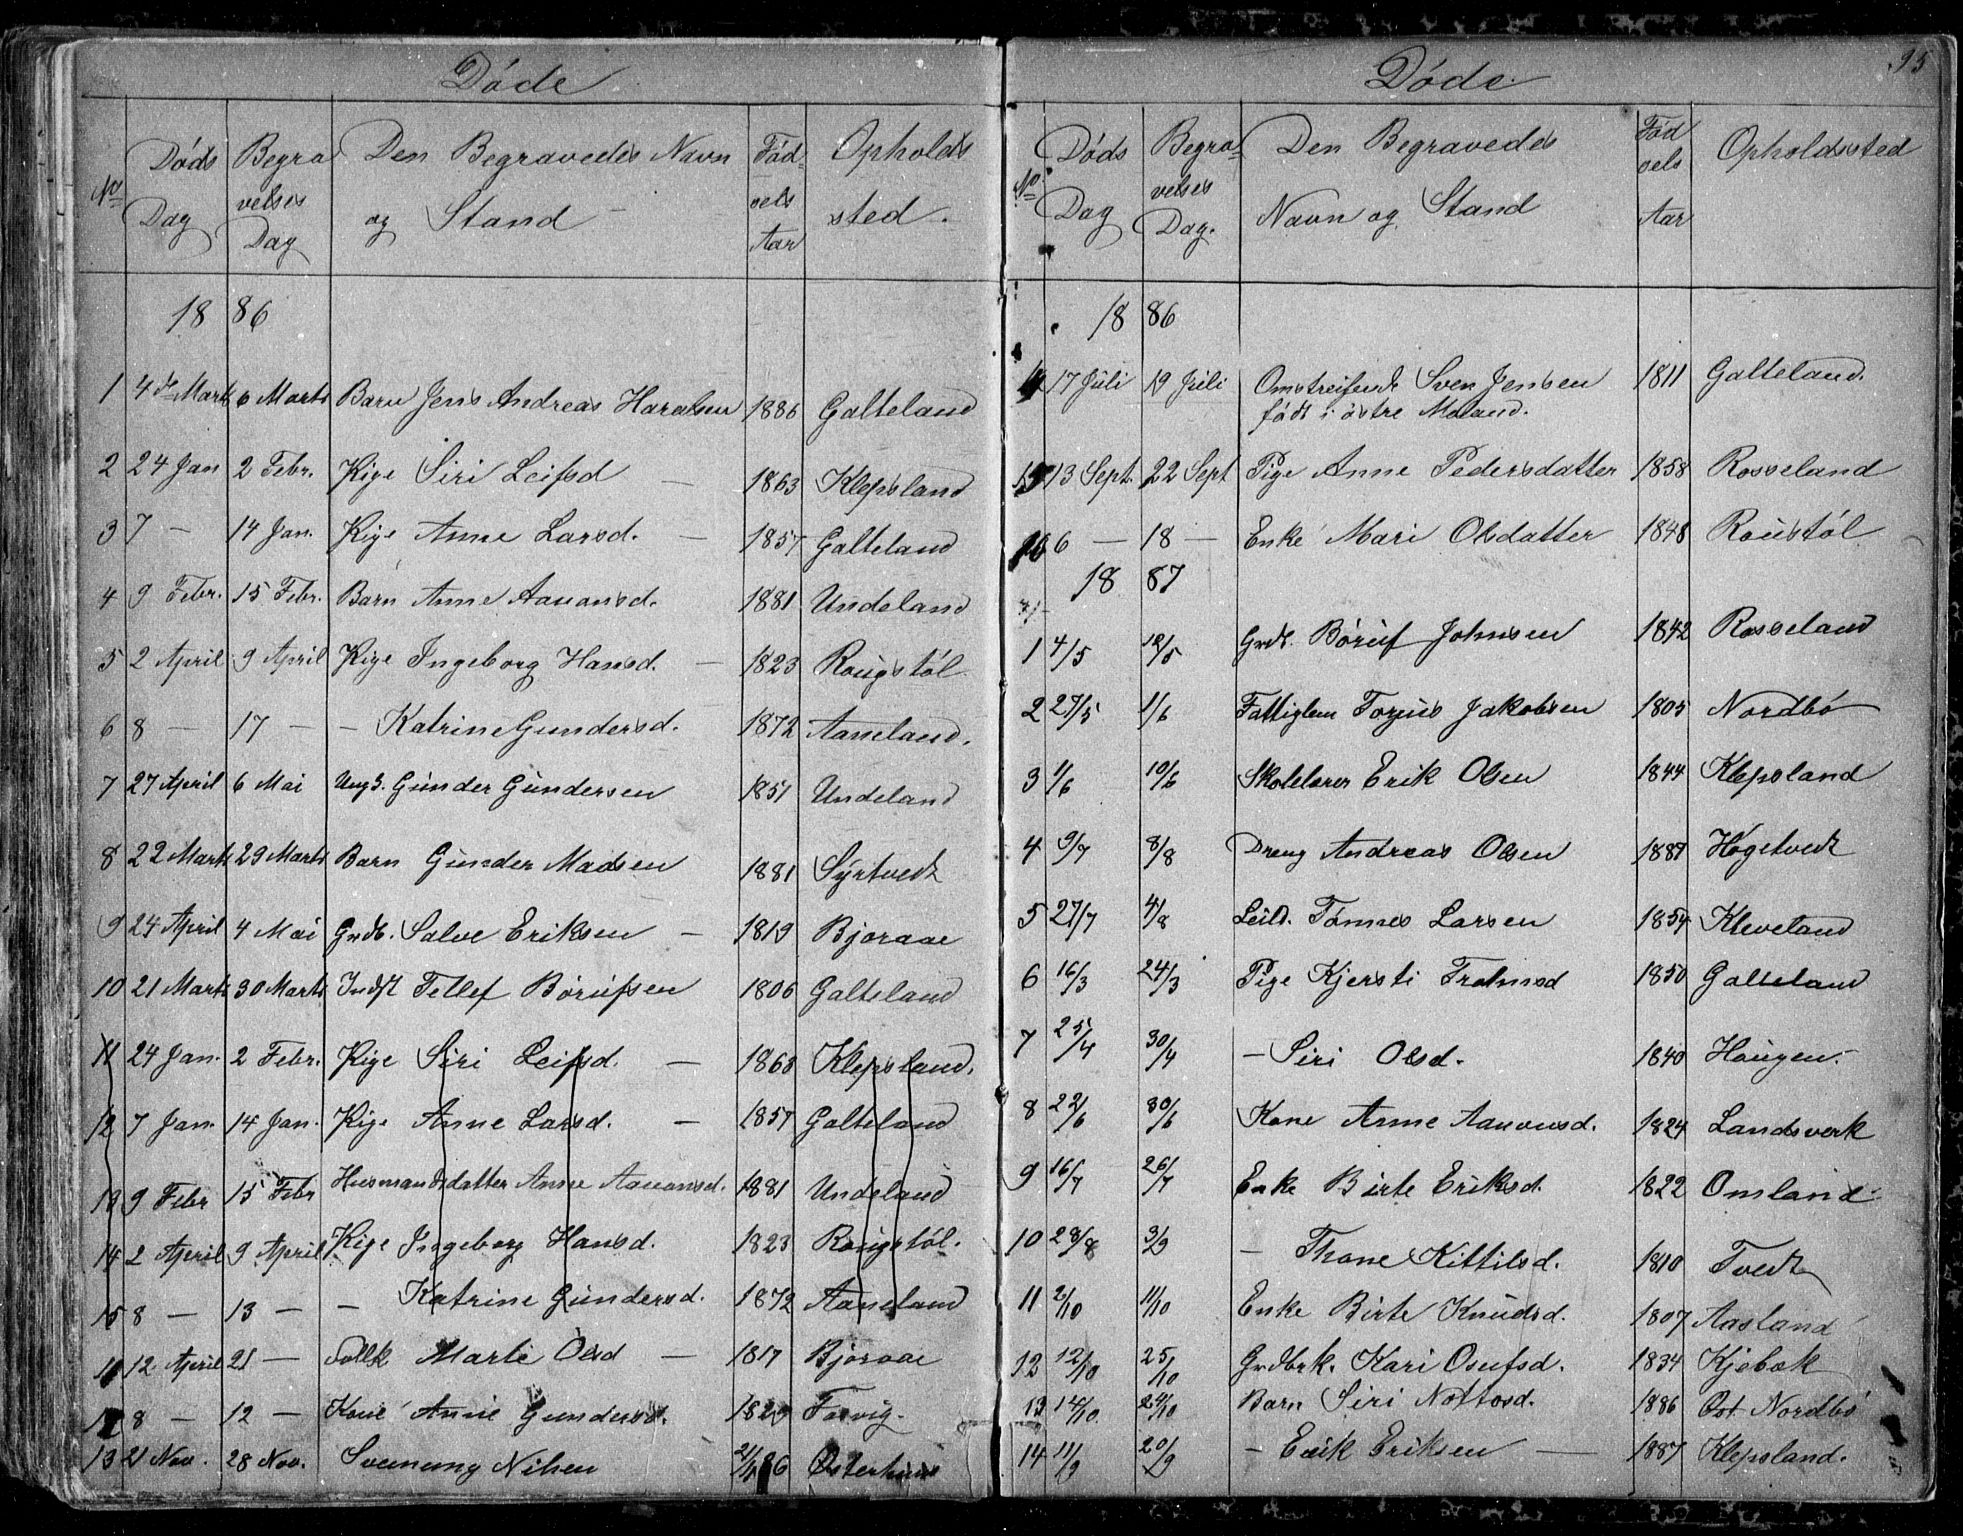 Døde
No
Døds Dag
Begravelses Dag
Den Begravedes Navn og Stand
Fødvels Aar
Opholdssted.
18 86
1 4de Marts 6 Marts Barn Jens Andreas Haralsen 1886 Galteland
2 24 Jan 2 Febr. Kige Siri Leifsd — 1863 Klepsland
3 7 — 14 Jan. Kige Anne Larsd. — 1857 Galteland
4 9 Febr. 15 Febr. Barn Anne Aavansd. 1881 Undeland
5 2 April 9 April Kige Ingeborg Hansd. — 1823 Rougstøl
6 8 — 17 — — Katrine Gundersd. 1872 Aaneland.
7 27 April 6 Mai Ungk. Gunder Gundersen 1851 Undeland
8 22 Marts 29 Marts Barn Gunder Madsen 1881 Syrtvedt
9 24 April 4 Mai Grdb. Salve Eriksen — 1819 Bjoraae
10 21 Marts 30 Marts Indst Tellef Børufsen 1806 Galteland
11 24 Jan. 2 Febr. Kige Siri Leifsd. — 1863 Klepsland.
12 7 Jan. 14 Jan. Kige Anne Larsd. — 1857 Galteland
13 9 Febr 15 Febr Husmandsdatter Anne Aavansd. 1881 Undeland
14 2 April 9 April Kige Ingeborg Hansd. 1823 Rougstøl.
15 8 — 13 — — Katrine Gundersd. 1872 Aaneland
11 12 April 21 — Folk Marte Olsd — 1817 Bjoraae
12 8 — 12 — Kone Anne Gundersd. Tosvig.
13 21 Nov. 28 Nov. Svenung Nilsen Østerhuus
95
Døde
No
Døds Dag
Begravelses Dag.
Den Begravedes Navn og Stand
Fødvels Aar
Opholdssted
18 86
17 Juli 19 Juli Omstreifende Sven Jensen 1811 Galteland.
født i østre Moland.
15 13 Sept. 22 Sept Pige Anne Pedersdatter 1858 Rosseland
16 6 — 18 — Enke Mari Olsdatter 1848 Roustøl
18 87
1 4/5 12/5 Grdb. Børuf Johnsen 1842 Rosseland
2 27/5 1/6 Fattiglem Torjus Jakobsen 1805 Nordbø
3 1/6 10/6 Skolelærer Erik Olsen 1844 Klepsland
4 9/7 8/8 Dreng Andreas Olsen 1887 Høgetvedt
5 27/7 4/8 Leild. Tønnes Larsen 1854 Kleveland
6 16/3 24/3 Pige Kjersti Trolmsd 1850 Galteland
7 25/4 30/4 — Siri Olsd. 1840 Haugen.
8 22/6 30/6 Kone Anne Aavansd. 1824 Landsverk
9 16/7 26/7 Enke Birte Eriksd. 1822 Omland
10 28/8 3/9 — Thone Kittilsd. 1810 Tvedt
11 2/10 11/10 Enke Birte Knudsd. 1807 Aasland
12 12/10 25/10 Grdbrk. Kari Osufsd. 1834 Kjebæk
13 14/10 24/10 Barn Siri Nottosd. 1886 Øst Nordbø
14 11/9 20/9 — Erik Eriksen — 1887 Klepsland.